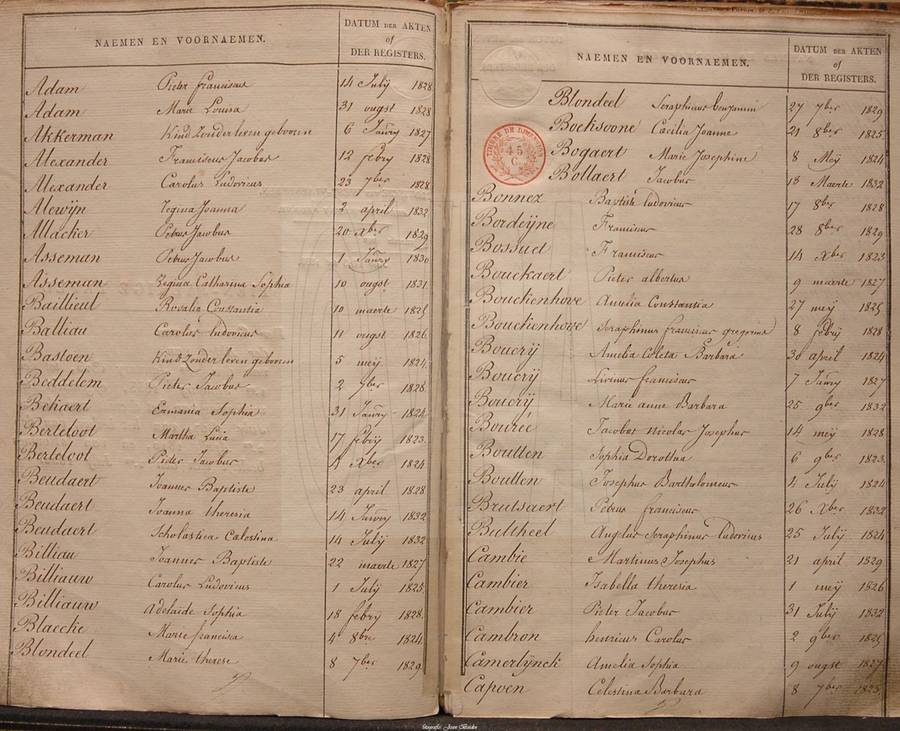 NAEMEN EN VOORNAEMEN.
DATUM DER AKTEN
of
DER REGISTERS.
Adam Pieter franciscus 14 July 1828
Adam Marie Louisa 31 ougst 1828
Akkerman Kind Zonder leven geboren 6 Jauwry 1827
Alexander Franciscus Jacobus 12 febry 1828
Alexander Carolus Ludovicus 23 7ber 1828
Alewijn Regina Joanna 2 april 1832
Allacker Petrus Jacobus 20 Xber 1829
Asseman Petrus Jacobus 1 Jauwry 1830
Asseman Regina Catharina Sophia 10 ougst 1831
Baillieul Rosalia Constantia 10 maerte 1825
Balliau Carolus Ludovicus 11 ougst 1826
Bastoen Kind Zonder leven geboren 5 meij 1824
Beddelem Pieter Jacobus 2 9ber 1828
Bekaert Ermania Sophia 31 Jauwry 1824
Berteloot Martha Lucia 17 febrij 1823
Berteloot Pieter Jacobus 4 Xber 1824
Beudaert Joannes Baptiste 23 april 1828
Beudaert Joanna theresia 14 1832
Beudaert Scholastica Celestina 14 July 1832
Billiau Joannes Baptiste 22 maerte 1827
Billiauw Carolus Ludovicus 1 July 1825
Billiauw Adelaide Sophia 18 febry 1828
Blaecke Marie francisca 4 8bre 1824
Blondeel Marie therese 8 7ber 1829
NAEMEN EN VOORNAEMEN.
DATUM DER AKTEN
of
DER REGISTERS.
TIMBRE DE DIMENSION
45
C.
Blondeel Seraphinus benjamin 27 7ber 1829
Boeksoone Cæcilia Joanne 21 8ber 1825
Bogaert Marie Josephine 8 Meij 1824
Bollaert Jacobus 18 Maerte 1832
Bonnez Baptiste ludovicus 17 8ber 1828
Bordeijne Franciscus 28 8ber 1829
Bossuet Franciscus 14 Xber 1823
Bouckaert Pieter albertus 9 maerte 1827
Bouckenhove Amelia Constantia 27 meij 1825
Bouckenhove Seraphinus franciscus gregorius 8 febrij 1828
Boucrij Amelia Coleta Barbara 30 april 1824
Boucrij Livinus franciscus 7 Jauwry 1827
Boucrij Marie anne Barbara 25 9ber 1832
Bourée Jacobus nicolas Josephus 14 meij 1828
Boutten Sophia Dorothea 6 9ber 1823
Boutten Josephus Bartholomeus 4 July 1824
Brutsaert Petrus franciscus 26 Xber 1832
Bultheel Angelus Seraphinus ludovicus 25 July 1824
Cambie Martinus Josephus 21 april 1829
Cambier Isabella theresia 1 meij 1826
Cambier Pieter Jacobus 31 July 1832
Cambron henricus Carolus 2 9ber 1825
Camerlynck Amelia Sophia 9 ougst 1827
Capoen Celestina Barbara 8 7ber 1825